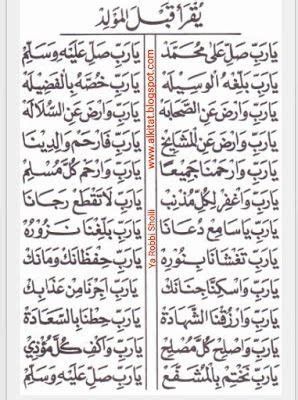 يُقْرَأُ قَبْلَ الْمَوْلِدِ
يَارَبِّ صَلِّ عَلَى مُحَمَّدْ يَارَبِّ صَلِّ عَلَيْهِ وَسَلِّمْ
يَارَبِّ بَلِّغْهُ الْوَسِيْلَهْ يَارَبِّ خُصَّهُ بِالْفَضِيْلَهْ
يَارَبِّ وَارْضَ عَنِ الصَّحَابَهْ يَارَبِّ وَارْضَ عَنِ السُّلَالَهْ
يَارَبِّ وَارْضَ عَنِ الْمَشَايِخْ يَارَبِّ فَارْحَمْ وَالِدِيْنَا
يَارَبِّ وَارْحَمْنَا جَمِيْعًا يَارَبِّ وَارْحَمْ كُلَّ مُسْلِمْ
يَارَبِّ وَاغْفِرْ لِكُلِّ مُذْنِبْ يَارَبِّ لَا تَقْطَعْ رَجَانَا
يَارَبِّ يَاسَامِعْ دُعَانَا يَارَبِّ بَلِّغْنَا نَزُوْرُهْ
يَارَبِّ تَغْشَانَا بِنُوْرِهْ يَارَبِّ حِفْظَانَكْ وَامَانَكْ
يَارَبِّ وَاسْكِنَّا جِنَانَكْ يَارَبِّ اَجِرْنَا مِنْ عَذَابِكْ
يَارَبِّ وَارْزُقْنَا الشَّهَادَةْ يَارَبِّ حِطْنَا بِالسَّعَادَةْ
يَارَبِّ وَاصْلِحْ كُلَّ مُصْلِحْ يَارَبِّ وَاكْفِ كُلَّ مُؤْذِيْ
يَارَبِّ نَخْتِمْ بِالْمُشَفَّعْ يَارَبِّ صَلِّ عَلَيْهِ وَسَلِّمْ
Ya Robbi Sholli
www.alkitat.blogspot.com